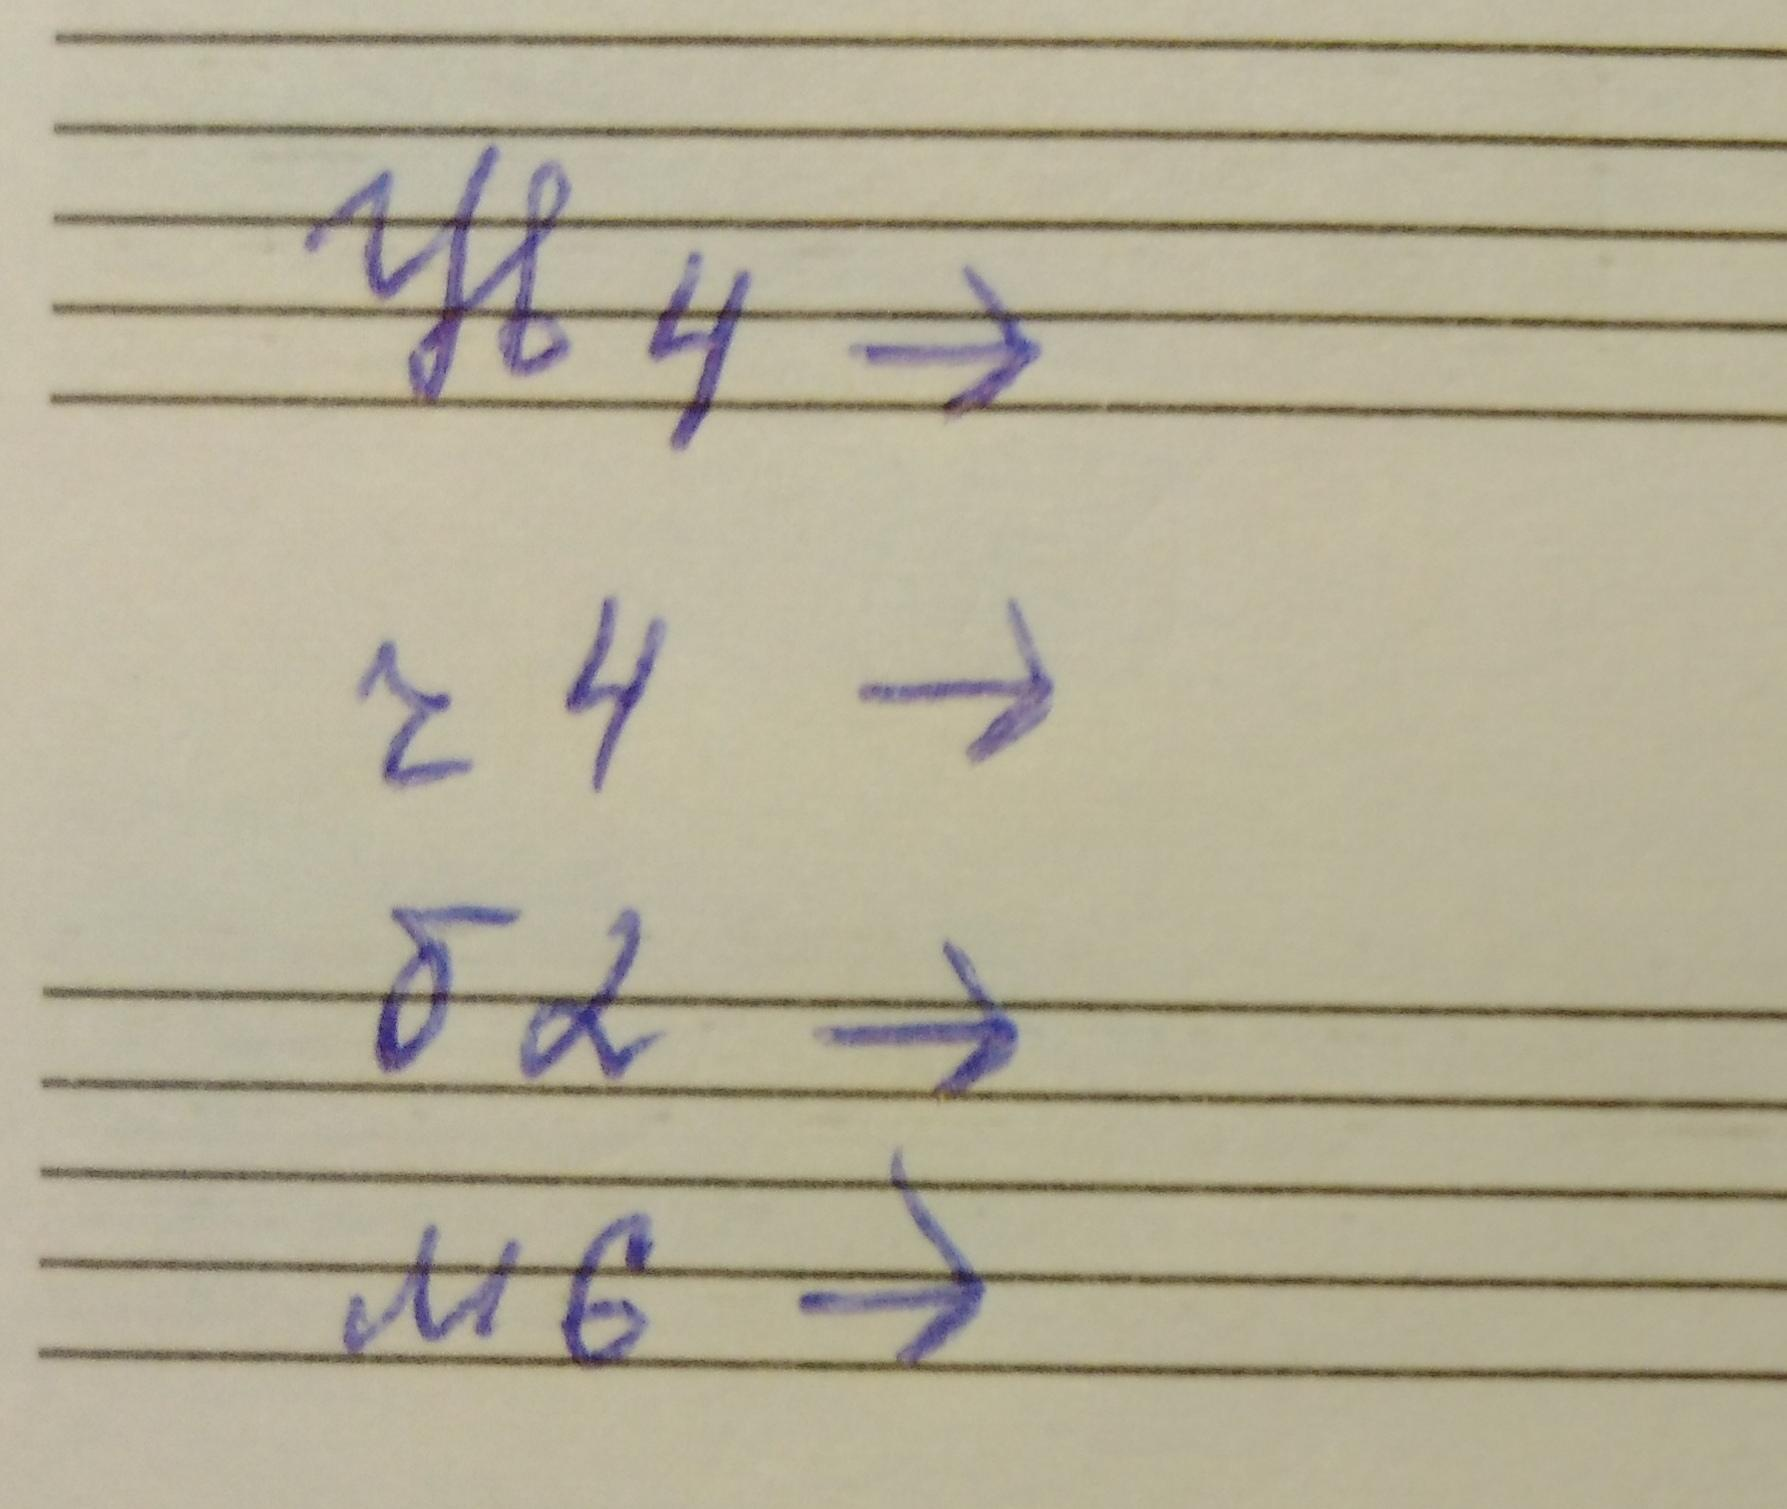 Ув 4 →
ч 4 →
б 2 →
м 6 →